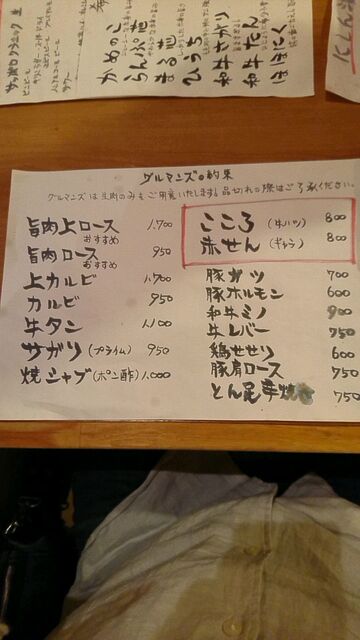 かめのこ
らんぷ芯
まる芯
ひうち
和牛サガリ
和牛たん
ほほにく
グルマンズの約束
グルマンズは生肉のみをご用意いたします。品切れの際はご了承ください。
旨肉上ロース 1,700
おすすめ
旨肉ロース 950
おすすめ
上カルビ 1,700
カルビ 950
牛タン 1,100
サガリ(プライム) 950
焼シャブ(ポン酢) 1,000
こころ(牛ハツ) 800
赤せん(ギャラ) 800
豚ガツ 700
豚ホルモン 600
和牛ミノ 900
牛レバー 750
鶏せせり 600
豚肩ロース 750
とん足辛焼き 750